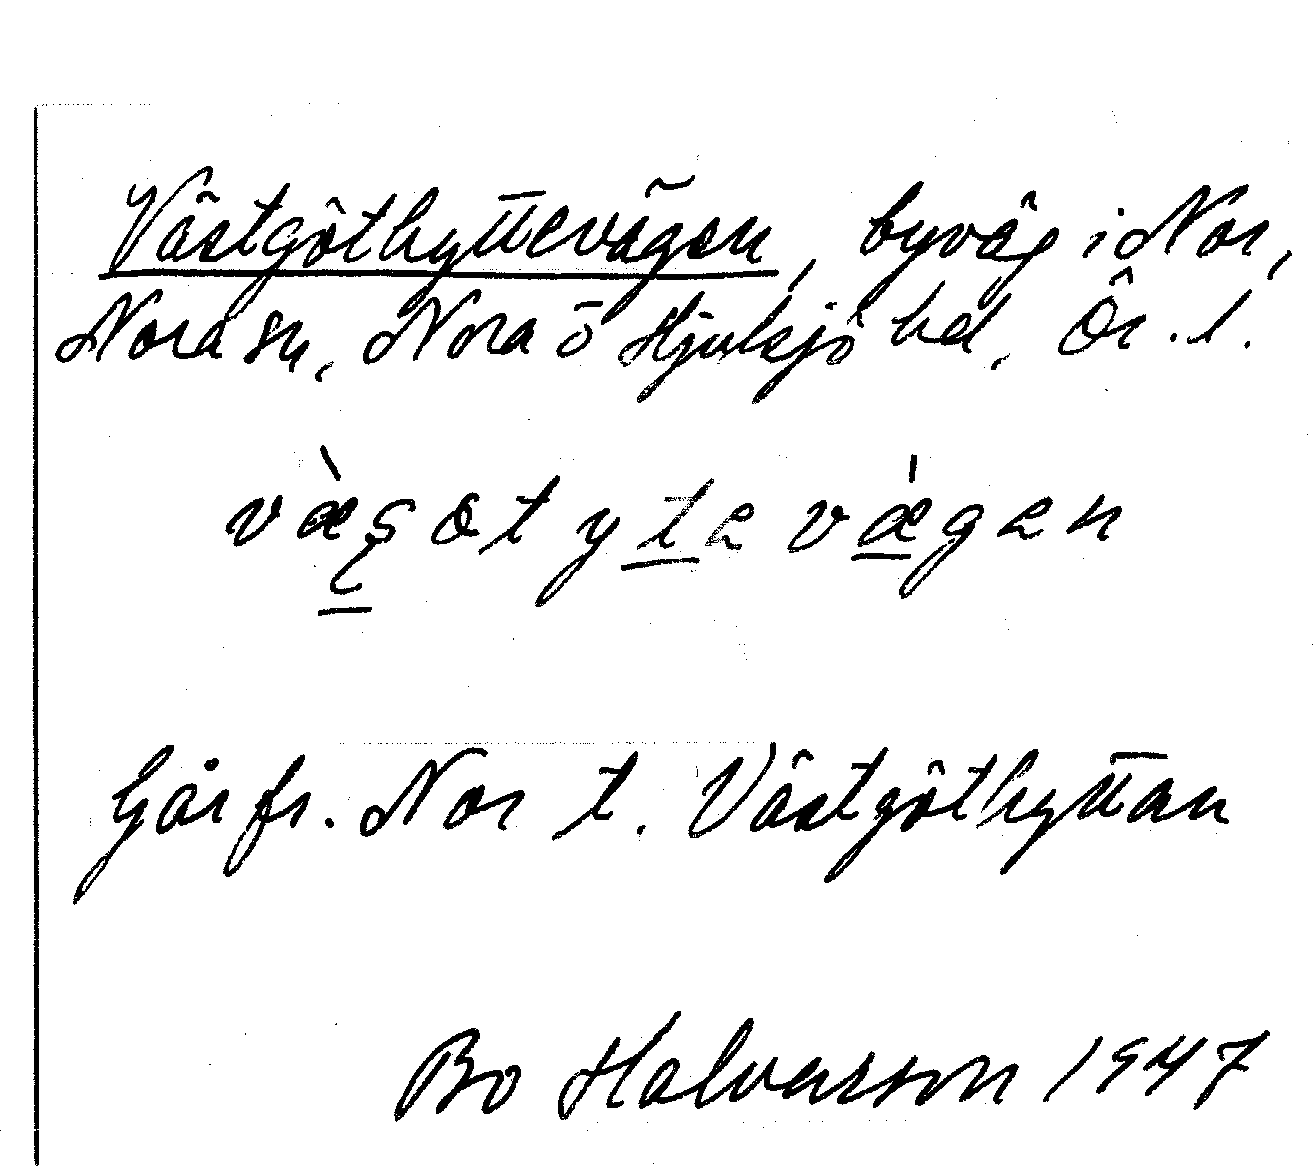 Västgöthyttevägen, byväg i Nor,
Nora sn, Nora o Hjulsjö hd, Ör. l.
væ̀ʂɵtytevæ̍gen
Går fr. Nor t. Västgöthyttan
Bo Halvarson 1947